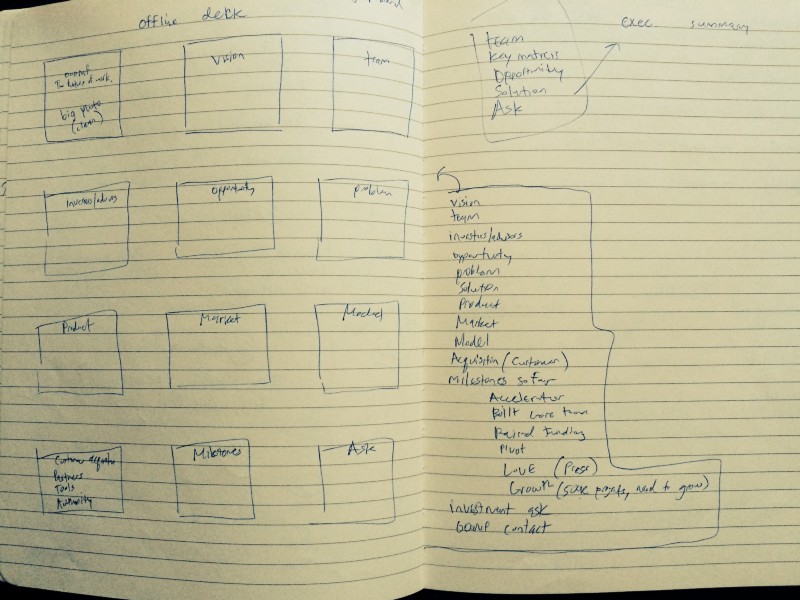 offline deck
The future of work.
big photo
(clean)
Vision
team
Investors/advisors
Opportunity
problem
Product
Market
Model
Customer Acquisition
Partners
Tools
Authority
Milestones
Ask
exec summary
team
key metrics
Opportunity
Solution
Ask
vision
team
investors/advisors
opportunity
problem
Solution
Product
Market
Model
Acquisition (customer)
Milestones so far
Accelerator
Built core team
Raised funding
Pivot
Love (Press)
Growth (500k projects, need to grow)
investment ask
contact